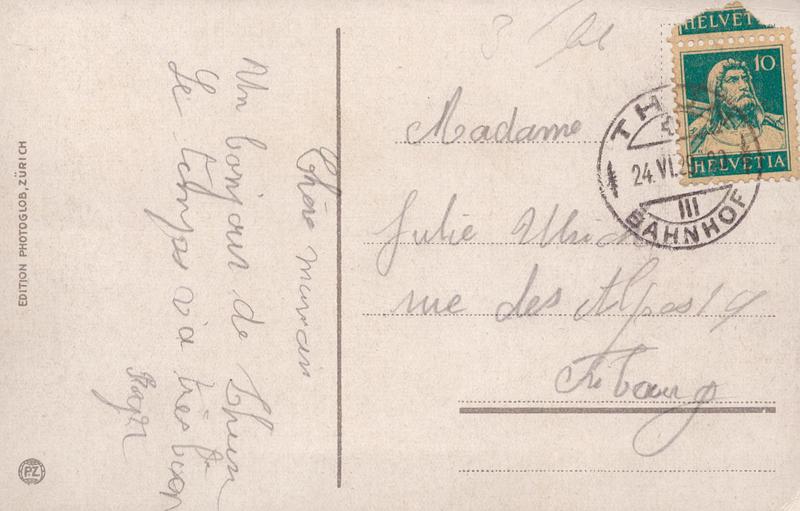 Chère maman
Un bonjour de Thun
Le temps va très bon
Roger
Madame
Julie Ulrich
rue des Alpes 14
Fribourg
HELVETIA
10
HELVETIA
THUN
24.VI.
III
BAHNHOF
EDITION PHOTOGLOB, ZÜRICH
PZ